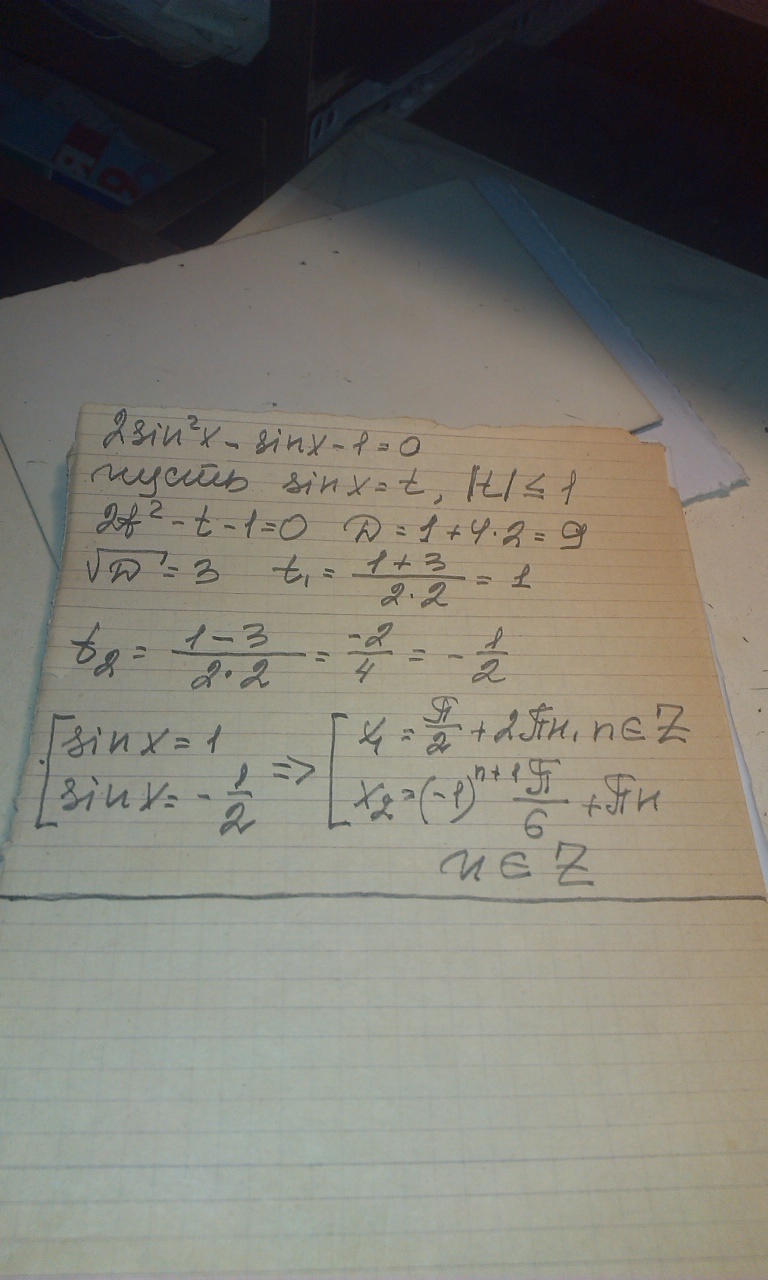 2sin²x - sinx - 1 = 0
пусть sin x = t, |t| ≤ 1
2t² - t - 1 = 0 D = 1 + 4·2 = 9
√D = 3 t₁ = (1+3)/(2·2) = 1
t₂ = (1-3)/(2·2) = -2/4 = -1/2
[sin x = 1 => [x₁ = π/2 + 2πn, n ∈ Z
[sin x = -1/2 [x₂ = (-1)ⁿ⁺¹ π/6 + πn
n ∈ Z